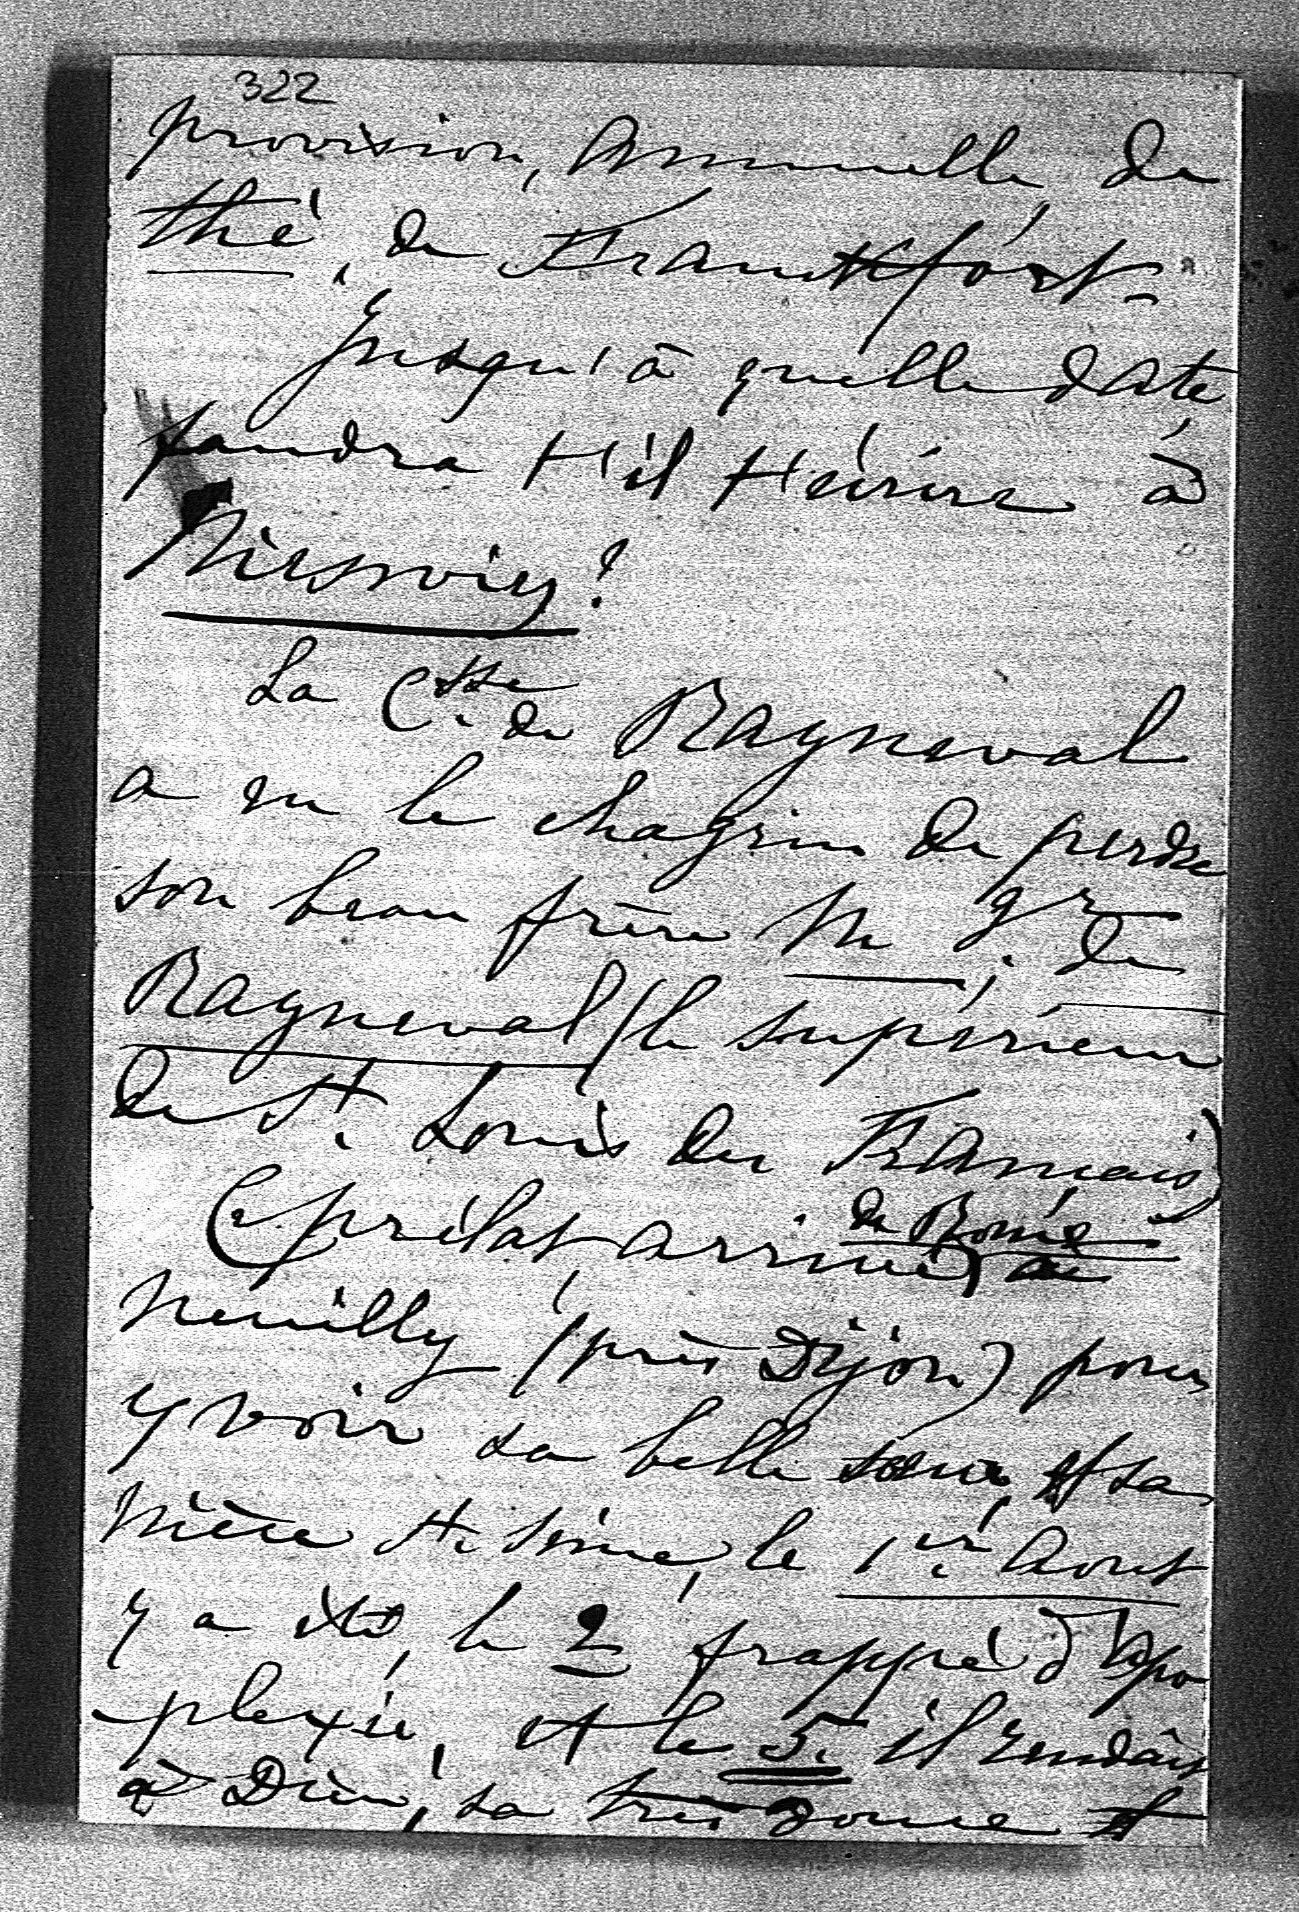 322
provision, Annuelle, de
thé, de Frankfort.
Jusqu'à quelle date
faudra t'il t'écrire à
La Ctsse. de Rayneval
a eu le chagrin de perdre
son beau frère Mgr. de
Rayneval (le supérieur
de St. Louis des Français)
de Rome
Ce prélat, arrivé, à
Neuilly (près Dijon) pour
y voir sa belle soeur, et sa
nièce le 1er. Aout
y a été, le 2 frappé d'Apo
plexie, et le 5. il rendait
à Dieu, sa très douce et